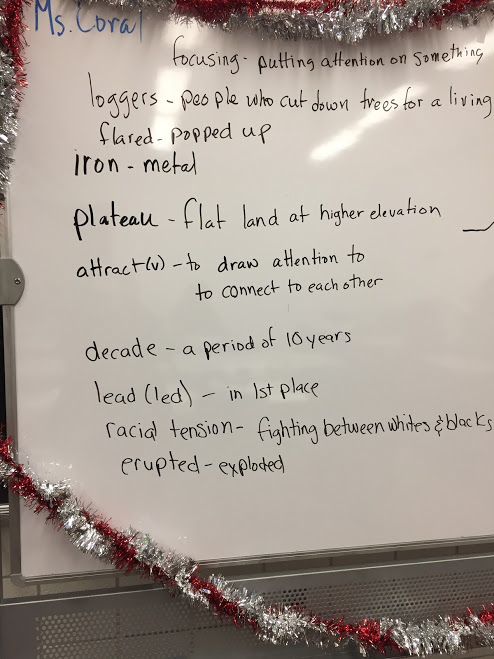 Ms. Coral
focusing - putting attention on something
loggers - people who cut down trees for a living
flared - popped up
iron - metal
plateau - flat land at higher elevation
attract (v) - to draw attention to
to connect to each other
decade - a period of 10 years
lead (led) - in 1st place
racial tension - fighting between whites & blacks
erupted - exploded